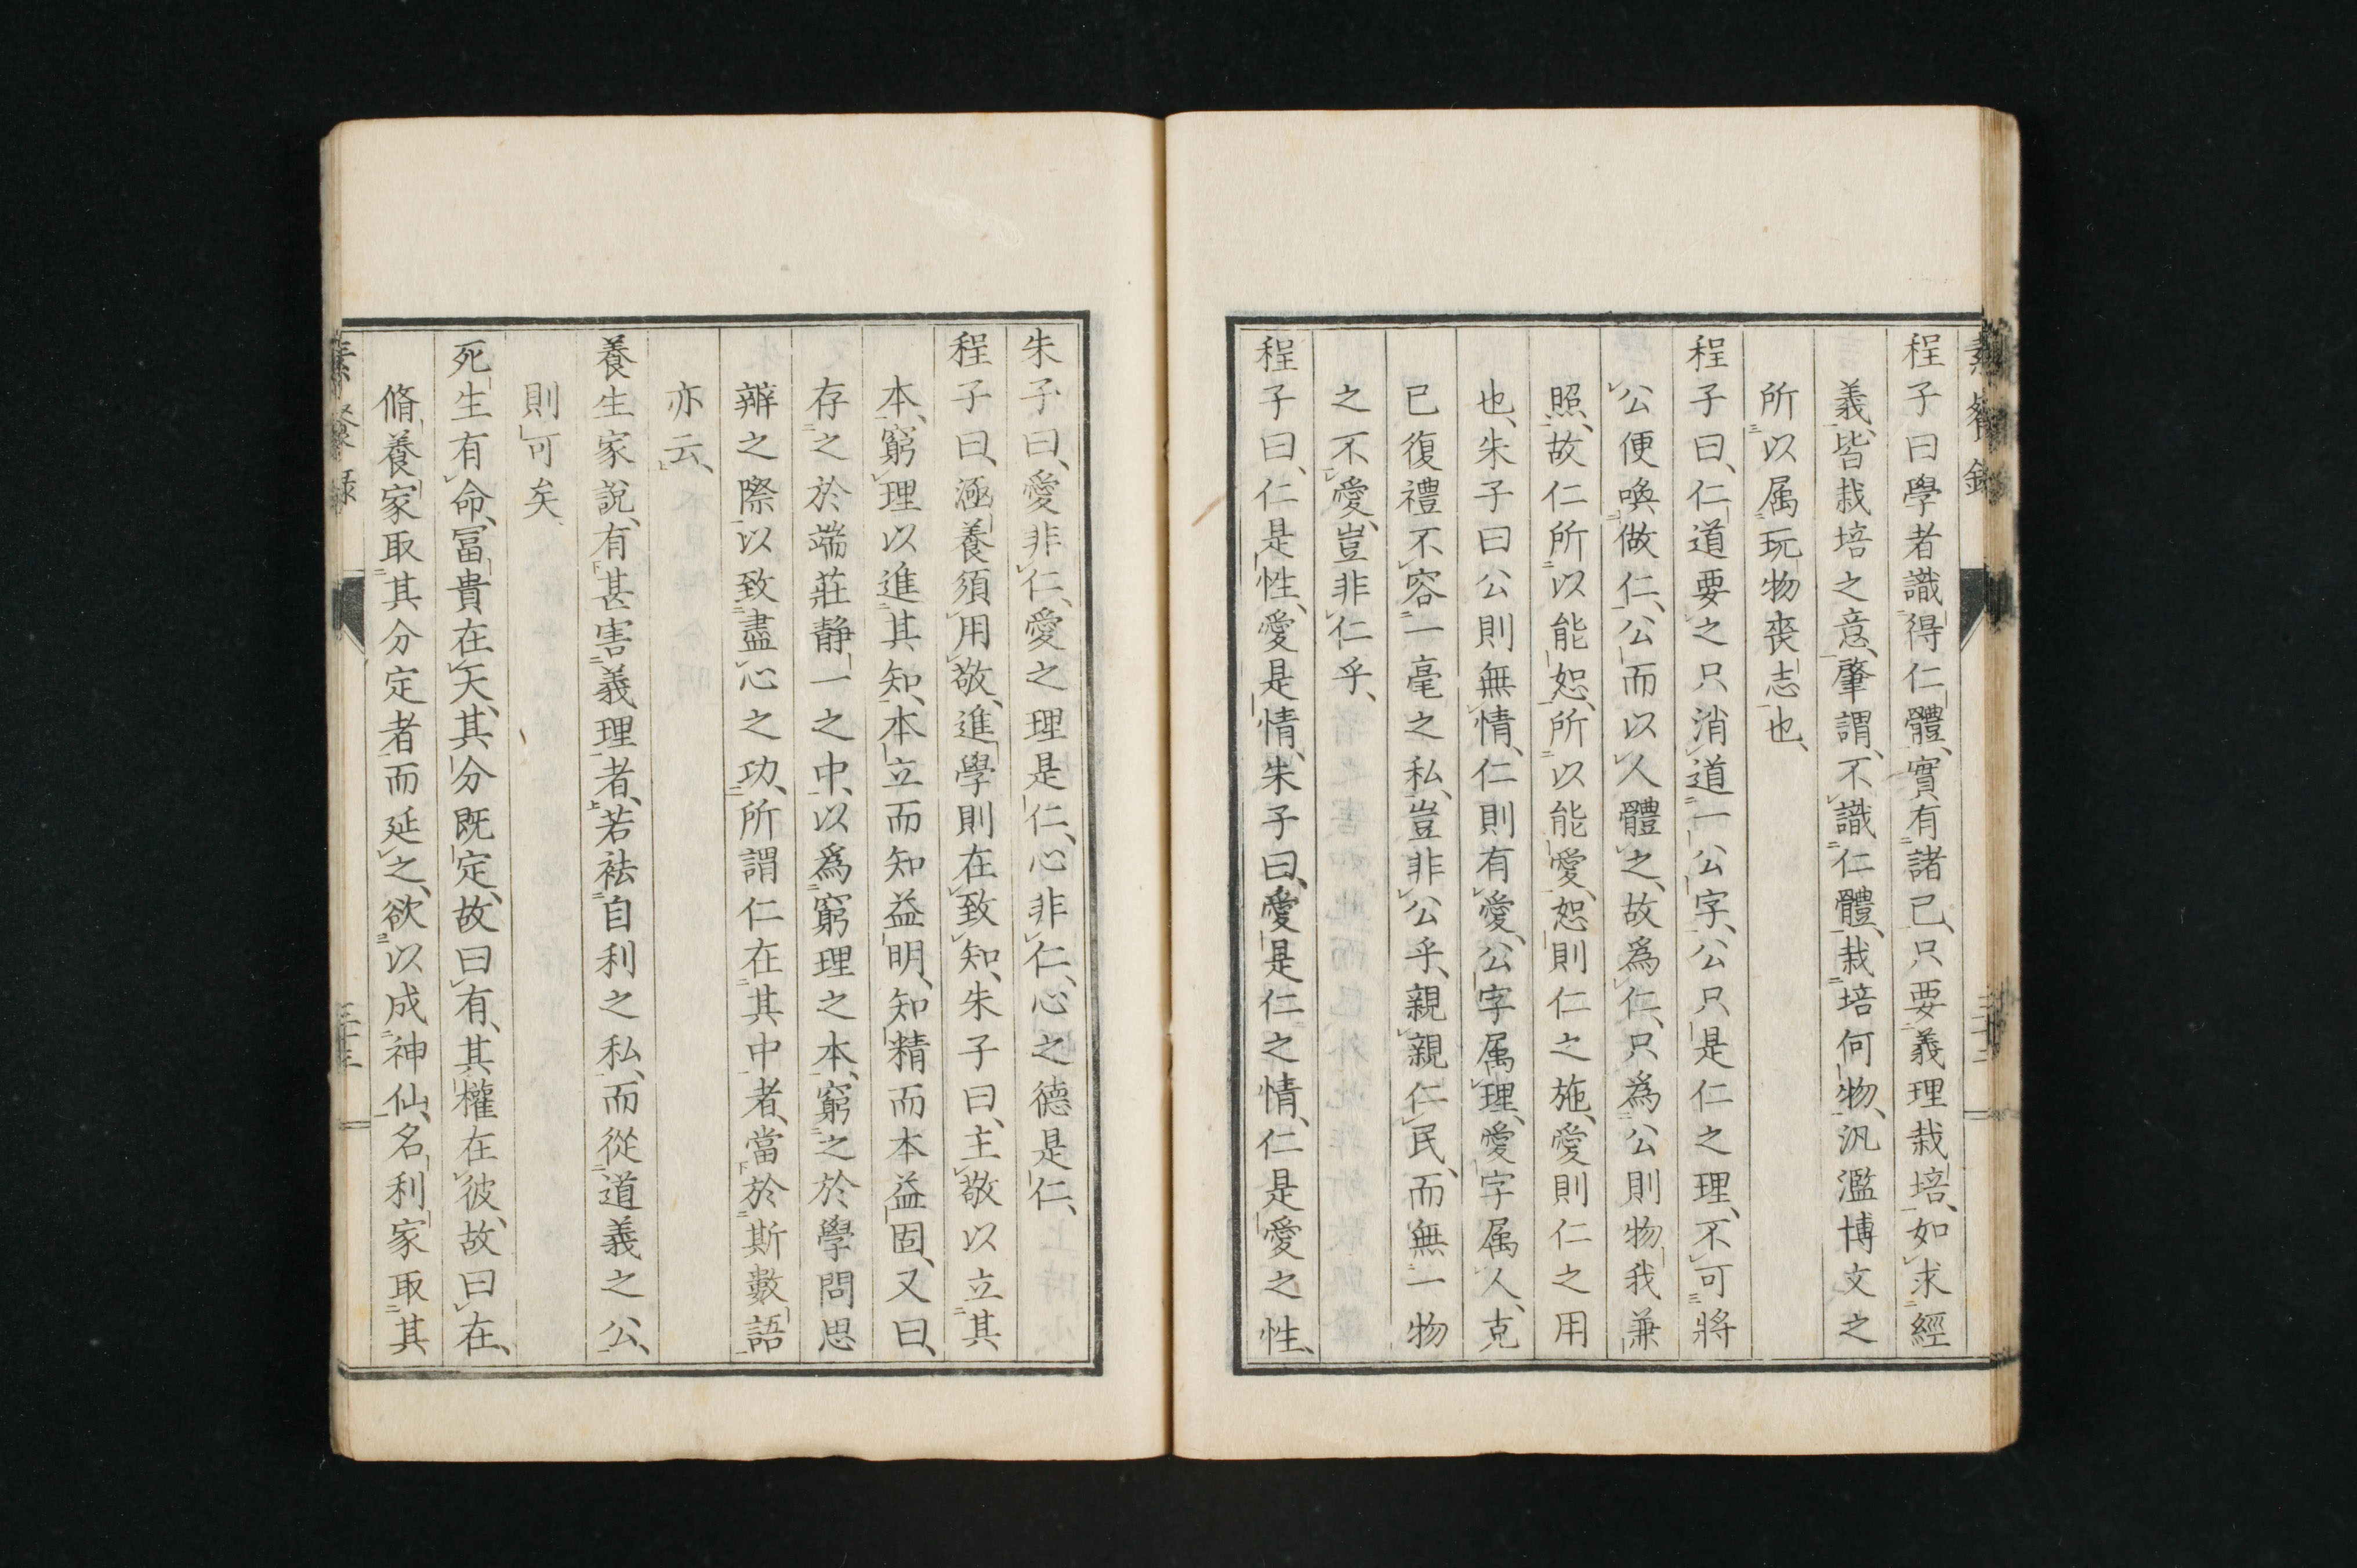 程子曰學者識得仁體、實有諸己、只要義理栽培、如求經
義、皆栽培之意、肇謂、不識仁體、栽培何物、汎濫博文之
所以属玩物喪志也、
程子曰、仁道要之只消道一公字、公只是仁之理、不可將
公便喚做仁、公而以人體之、故爲仁、只爲公則物我兼
照、故仁所以能恕、所以能愛、恕則仁之施、愛則仁之用
也、朱子曰公則無情、仁則有愛、公字属理、愛字属人、克
已復禮不容一毫之私、豈非公乎、親親仁民、而無一物
之不愛、豈非仁乎、
程子曰、仁是性、愛是情、朱子曰、愛是仁之情、仁是愛之性、
朱子曰、愛非仁、愛之理是仁、心非仁、心之德是仁、
程子曰、涵養須用敬、進學則在致知、朱子曰、主敬以立其
本、窮理以進其知、本立而知益明、知精而本益固、又曰、
存之於端莊靜一之中、以爲窮理之本、窮之於學問思
辨之際、以致盡心之功、所謂仁在其中者、當於斯數語
亦云、
養生家說、有甚害義理者、若祛自利之私、而從道義之公、
則可矣
死生有命、冨貴在天、其分既定、故曰有、其權在彼、故曰在、
脩養家取其分定者而延之、欲以成神仙、名利家取其